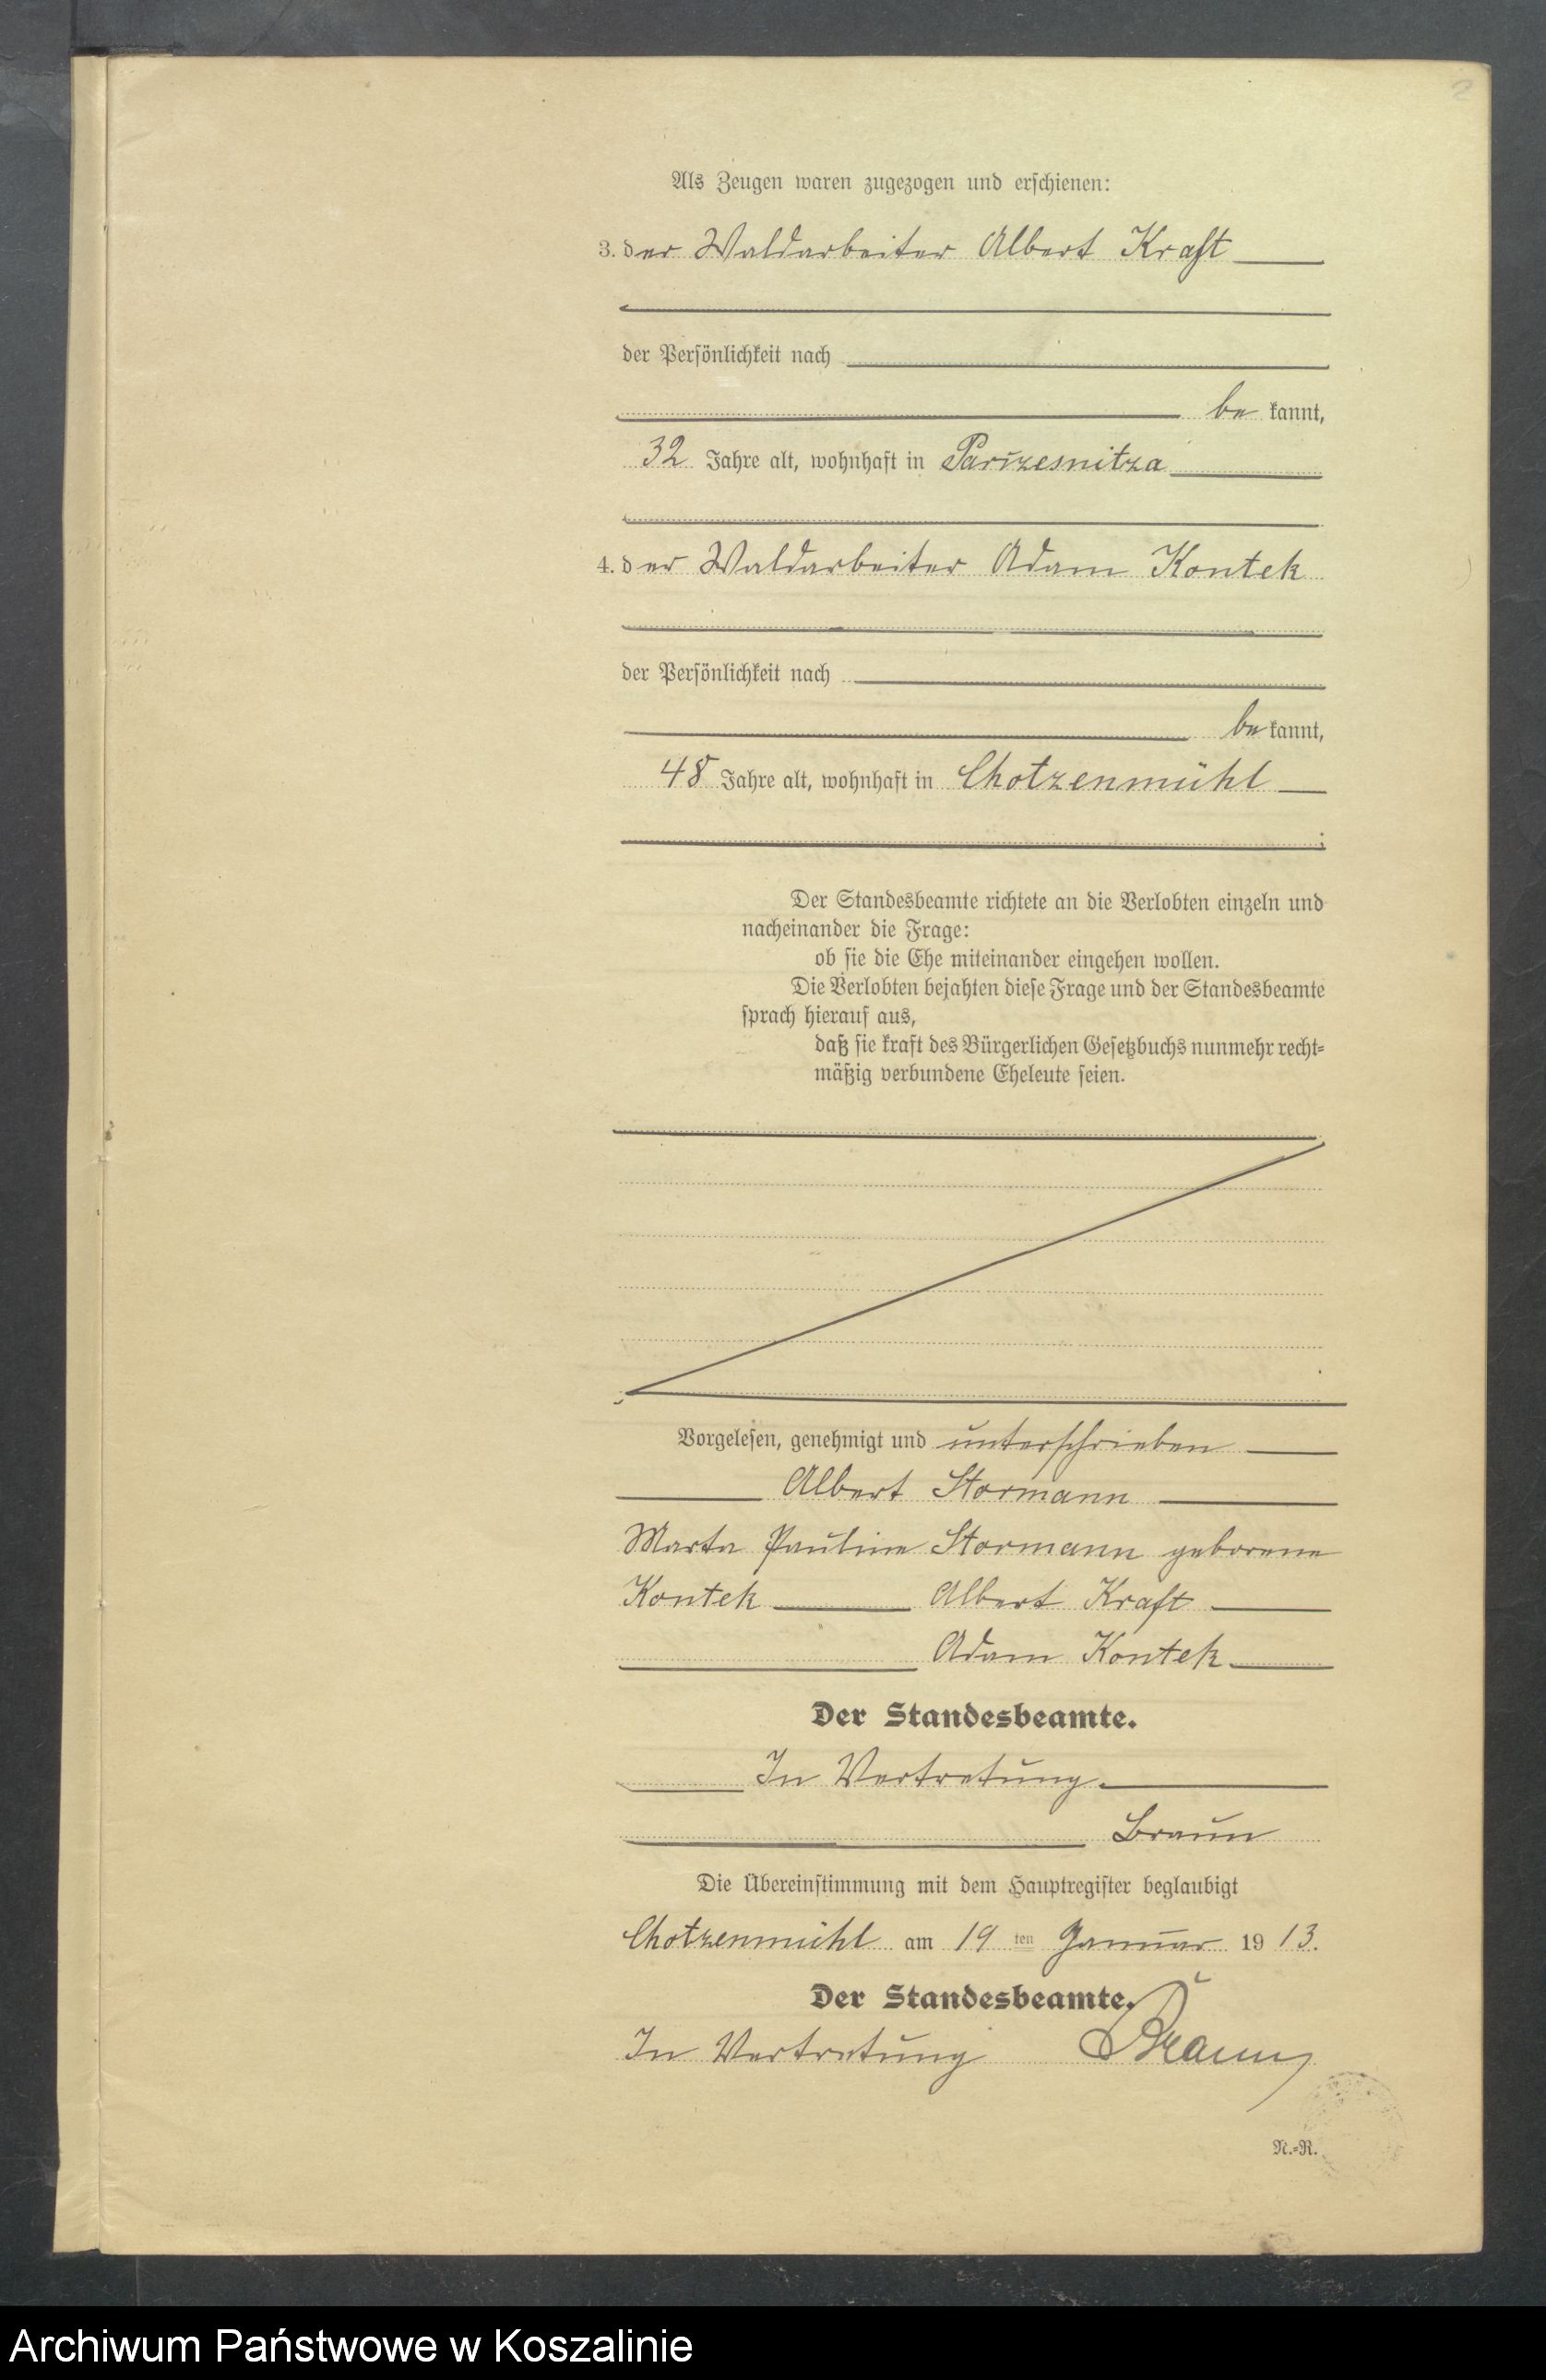 2
Als Zeugen waren zugezogen und erschienen:
3. der Waldarbeiter Albert Kraft
der Persönlichkeit nach
be kannt,
32 Jahre alt, wohnhaft in Parszesnitza
4. der Waldarbeiter Adam Kontek
der Persönlichkeit nach
be kannt,
48 Jahre alt, wohnhaft in Chotzenmühl
;
Der Standesbeamte richtete an die Verlobten einzeln und
nacheinander die Frage:
ob sie die Ehe miteinander eingehen wollen.
Die Verlobten bejahten diese Frage und der Standesbeamte
sprach hierauf aus,
daß sie kraft des Bürgerlichen Gesetzbuchs nunmehr recht-
mäßig verbundene Eheleute seien.
Vorgelesen, genehmigt und unterschrieben
Albert Stormann
Marta Pauline Stormann geborene
Kontek Albert Kraft
Adam Kontek
Der Standesbeamte.
In Vertretung.
Braun
Die Übereinstimmung mit dem Hauptregister beglaubigt
Chotzenmühl am 19 ten Januar 19 13.
Der Standesbeamte.
In Vertretung Braun
N.-R.
Archiwum Państwowe w Koszalinie